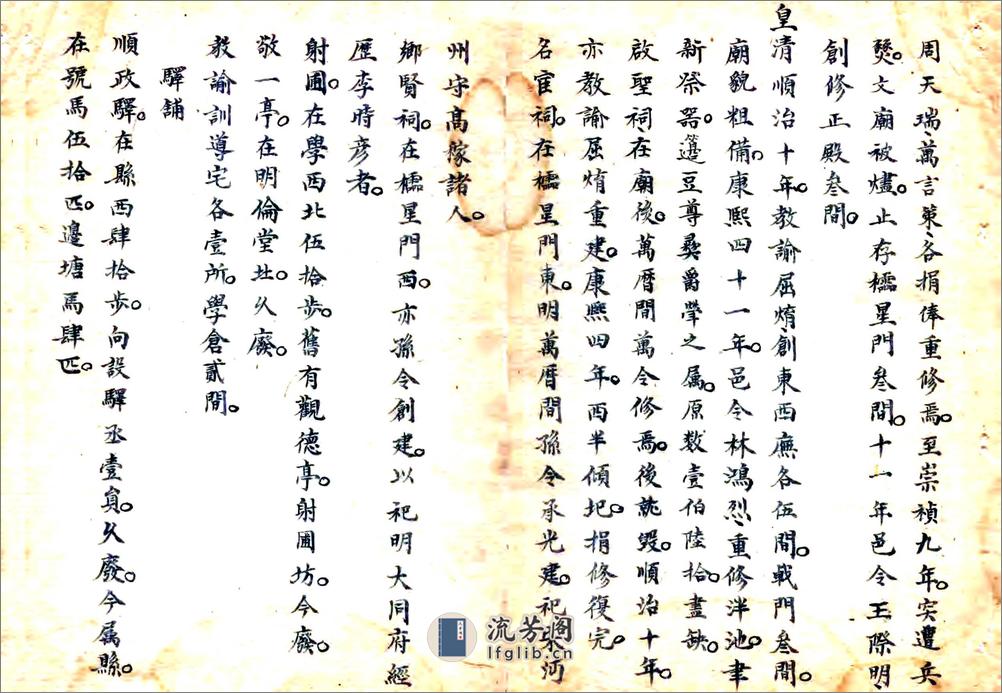 周天瑞、萬言策、各捐俸重修焉。至崇禎九年。突遭兵
燹。文廟被燼。止存櫺星門叁間。十一年邑令王際明
創修正殿叁間。
皇清順治十年。教諭屈堉、創東西廡各伍間。戟門叁間。
廟貌粗備。康熙四十一年。邑令林鴻烈、重修泮池。聿
新祭器。籩豆尊彝爵斝之属。原数壹伯陸拾。盡缺。
啟聖祠、在廟後。萬曆間萬令修焉。後燕毀。順治十年。
亦教諭屈堉重建。康熙四年。西半傾圯。捐修復完。
名宦祠。在櫺星門東。明萬曆間孫令承光建。祀
州守高稼諸人。
鄉賢祠。在櫺星門西。亦孫令創建。以祀明大同府經
歷李時彦者。
射圃。在學西北伍拾步。舊有觀德亭。射圃坊。今廢。
敬一亭。在明倫堂北。乆廢。
教諭訓導宅各壹所。學倉貳間。
驛舖
順政驛。在縣西肆拾步。向設驛丞壹員。乆廢。今属縣。
在號馬伍拾匹。邊塘馬肆匹。
流芳閣
lfglib.cn